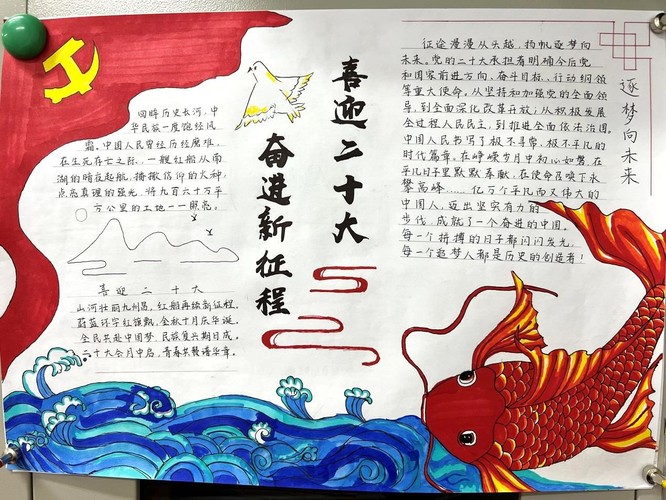 喜迎二十大
奋进新征程
回眸历史长河，中
华民族一度饱经风
霜。中国人民曾经历经磨难，
在生死存亡之际，一艘红船从南
湖的暗夜起航，播撒信仰的火种，
点亮真理的强光，将九百六十万平
方公里的土地一一照亮。
喜迎二十大
山河壮丽九州昌，红船再续新征程。
蔚蓝环宇红旗飘，金秋十月庆华诞。
全民共赴中国梦，民族复兴期日成。
二十大会月中启，青春共赞谱华章。
逐梦向未来
征途漫漫从头越，扬帆逐梦向
未来。党的二十大承担着明确今后党
和国家前进方向、奋斗目标、行动纲领
等重大使命。从坚持和加强党的全面领
导，到全面深化改革开放；从积极发展
全过程人民民主，到推进全面依法治国，
中国人民书写了极不寻常、极不平凡的
时代篇章。在峥嵘岁月中初心如磐，在
平凡日子里默默奉献，在使命召唤下永
攀高峰……亿万个平凡而又伟大的
中国人，迈出坚实有力的
步伐，成就了一个奋进的中国。
每一个拼搏的日子都闪闪发光，
每一个追梦人都是历史的创造者！